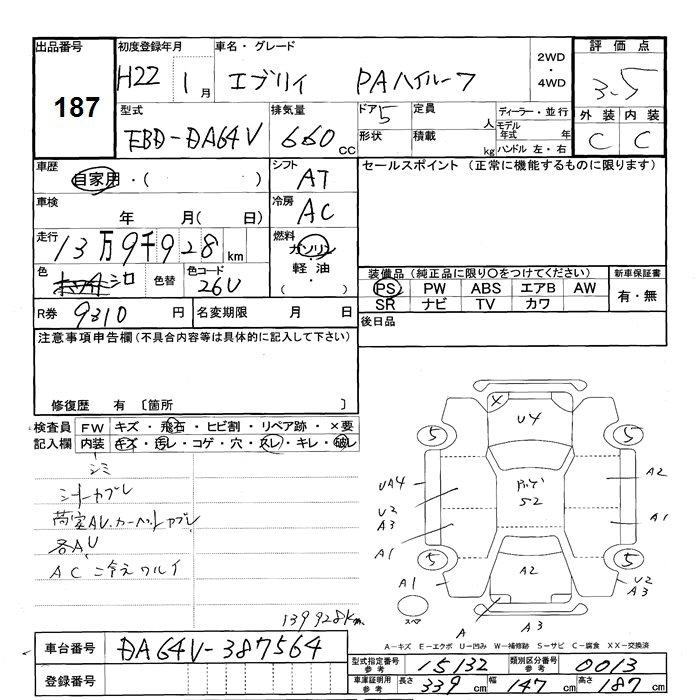 出品番号 初度登録年月 車名・グレード 2WD・4WD 評価点
187 H22 1月 エブリイ PAハイルーフ 3.5
型式 排気量 ドア 5 定員 人 ディーラー・並行 外装 内装
EBD-DA64V 660cc 形状 積載 kg モデル年式 年 ハンドル 左・右 C C
車歴 自家用・( ) シフト AT セールスポイント (正常に機能するものに限ります)
車検 年 月( 日) 冷房 AC
走行 13万9千928km 燃料 ガソリン・軽油・( )
色 シロ 色替 色コード 26U
装備品(純正品に限り○をつけてください) 新車保証書
PS PW ABS エアB AW 有・無
SR ナビ TV カワ
R券 9310円 名変期限 月 日 後日品
注意事項申告欄(不具合内容等は具体的に記入して下さい)
修復歴 有 〔箇所 〕
検査員 FW キズ・飛石・ヒビ割・リペア跡・×要
記入欄 内装 キズ・汚レ・コゲ・穴・スレ・キレ・破レ
シミ
シートカブレ
荷室AU.カーペットカブレ
各AU
AC冷えワルイ
139928Km
X U4
5 5
UA4 A2
52
U2 A3 A1
A1
5 5
A2
A1 U2 A3
スペア A A3
A-キズ E-エクボ U-凹み W-補修跡 S-サビ C-腐食 XX-交換済
車台番号 DA64V-387564
型式指定番号 参考 15132 類別区分番号 参考 0013
登録番号
車庫証明用 参考 長さ 339cm 幅 147cm 高さ 187cm